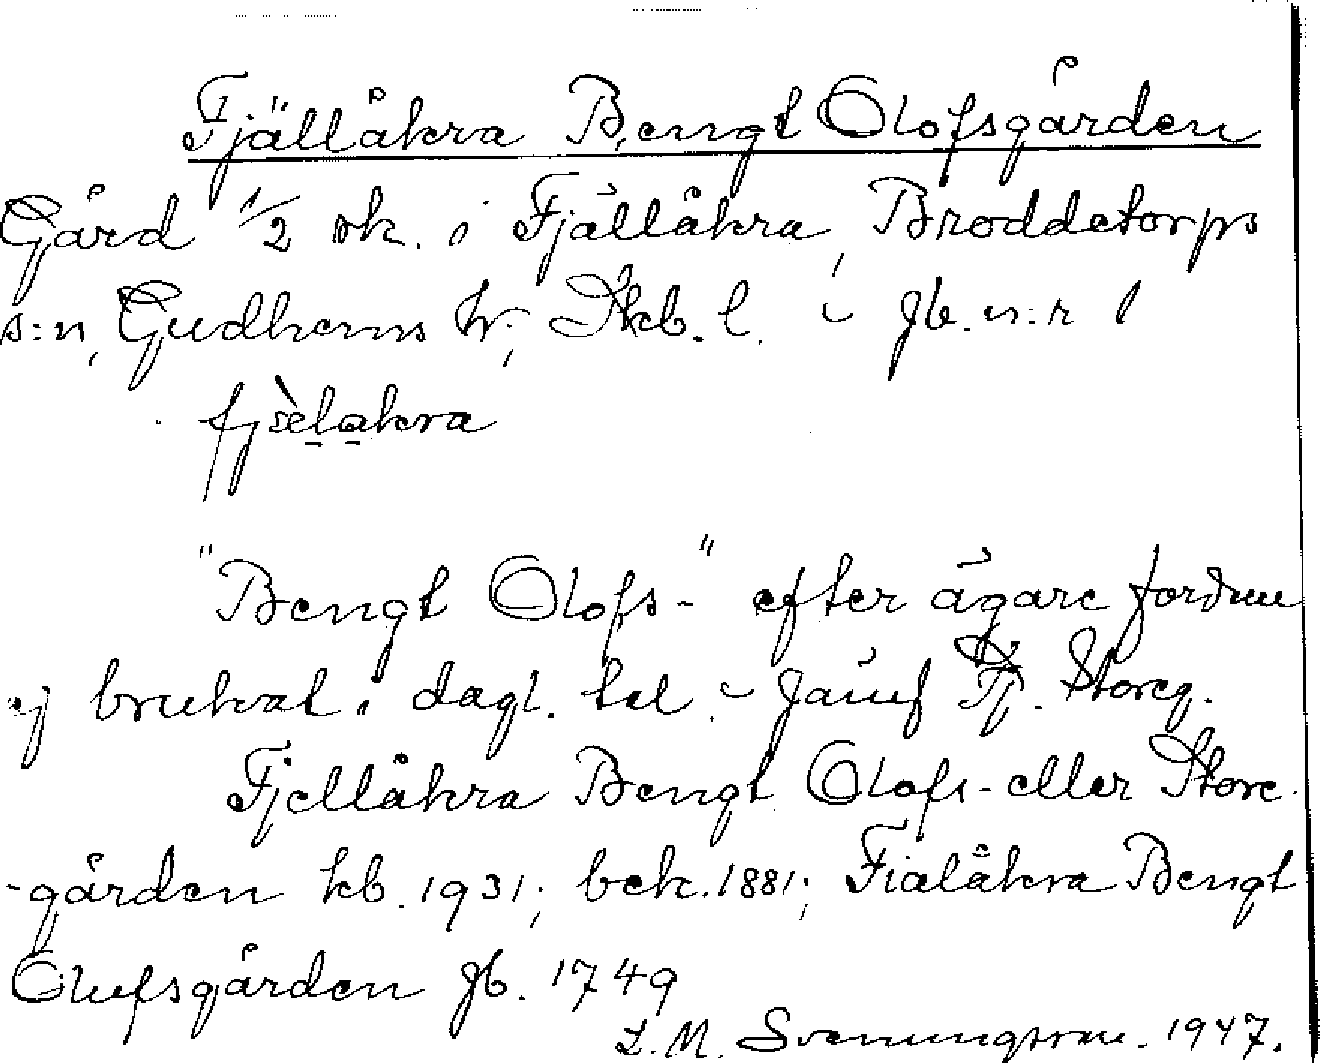 Fjällåkra Bengt Olofsgården
Gård 1/2 sk. i Fjällåkra, Broddetorps
s:n, Gudhems h:, Skb. l. - Jb. n:r 1
fjælakra
"Bengt Olofs-" efter ägare fordom
ej brukat i dagl. tal. - Jämf Fj. Storeg.
Fjellåkra Bengt Olofs- eller Store-
-gården kb. 1931; bek. 1881; Fialåkra Bengt
Olufsgården Jb. 1749
L. M. Svenungsson. 1947.